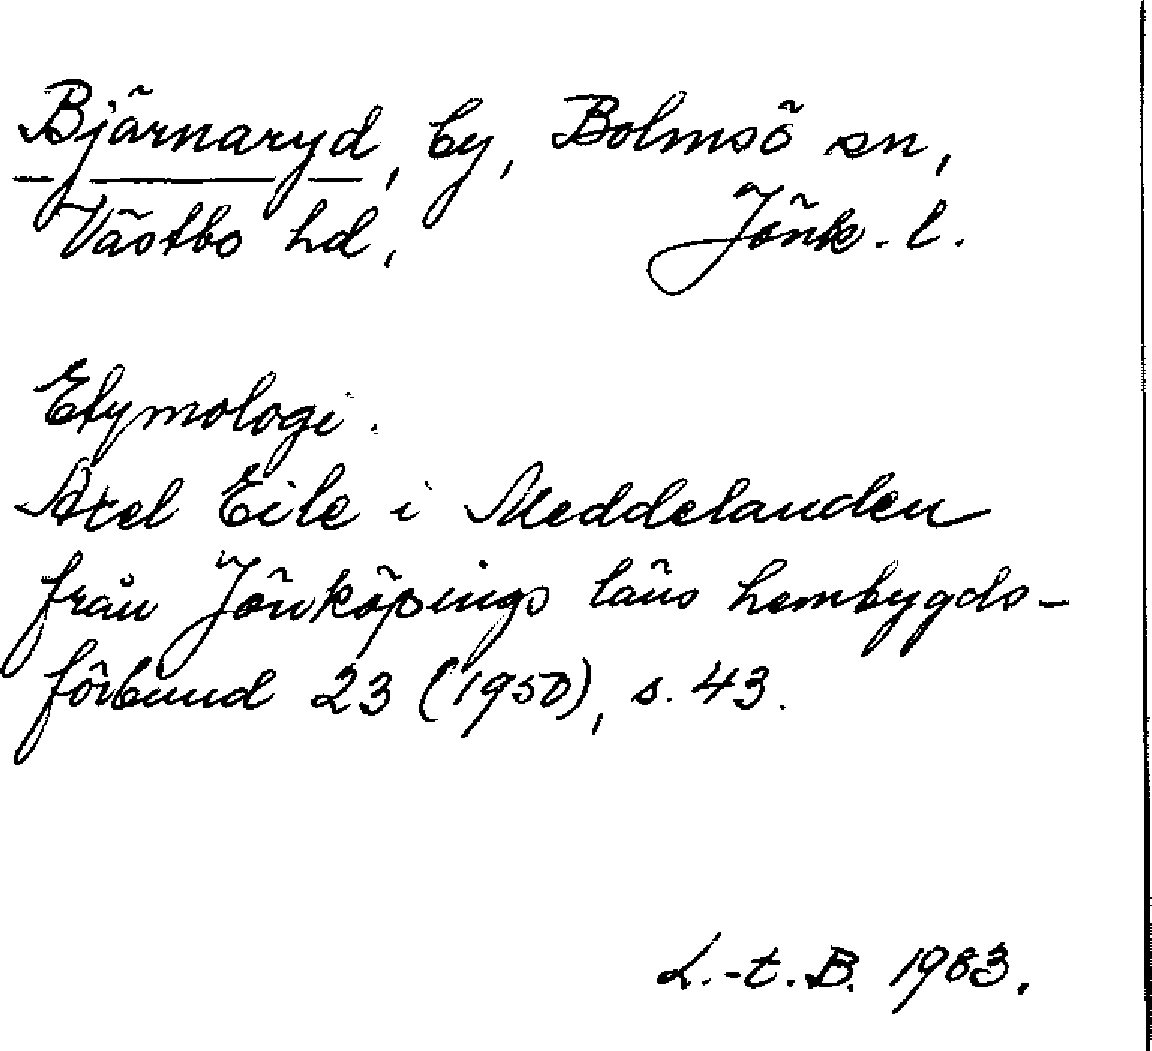 Bjärnaryd, by, Bolmsö sn,
Västbo hd, Jönk. l.
Etymologi.
Axel Eile i Meddelanden
från Jönköpings läns hembygds-
förbund 23 (1950), s. 43.
L.-t. B. 1983.